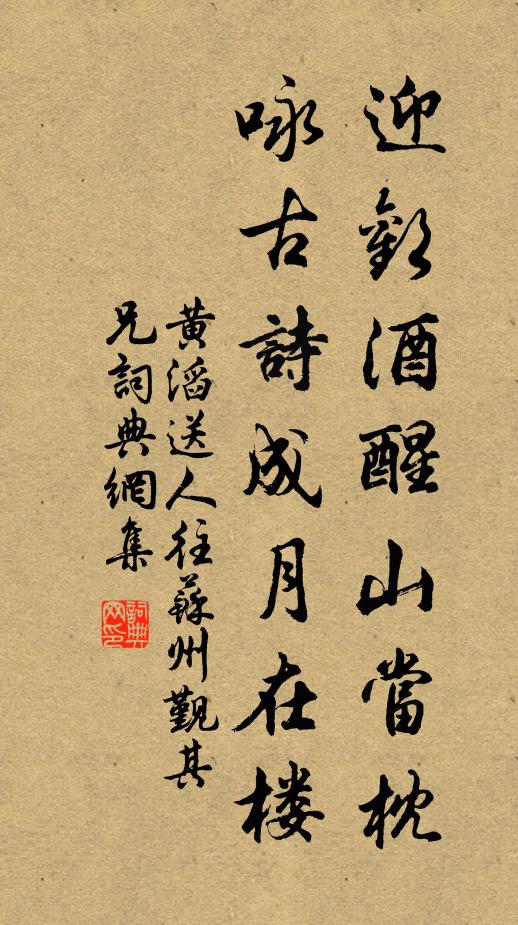 迎歡酒醒山當枕
咏古詩成月在楼
黄滔送人往蘇州覲其
兄詞典網集
詞典
网印